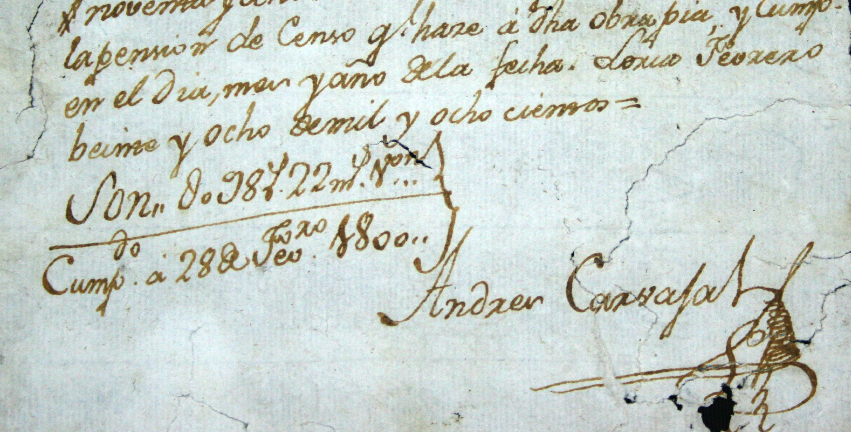 novenita y
la pension de Censo q.e haze á dha obra pia, y Cump.
en el Dia, mes y año de la fecha. Lorca Febrero
beinte y ocho de mil y ocho cientos =
Son,, 22 m.s V.on...
Cump.do á 28 de Feb.ro 1800..
Andres Carvajal